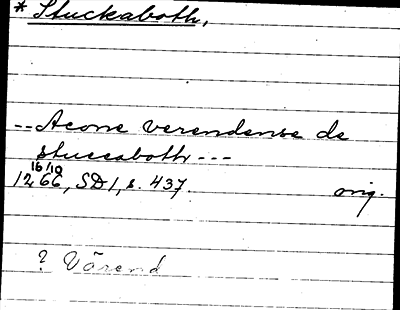 * Stuckaboth,
-- Acone verendense de
stuccaboth ---
16/10
1266, SD 1, s. 437. orig.
? Värend